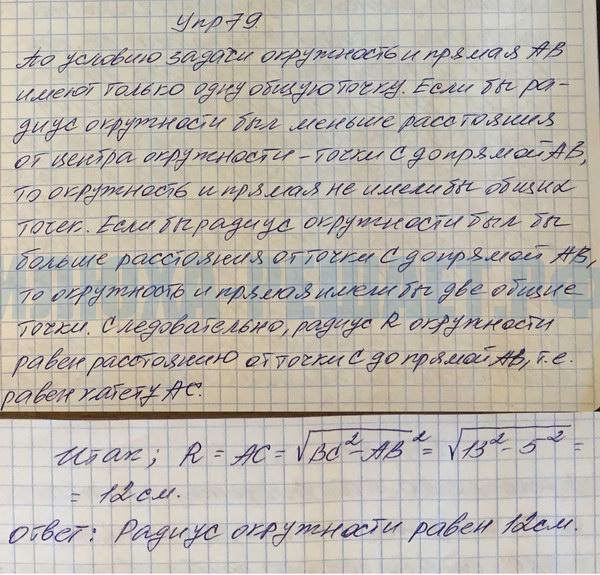 Упр 79
По условию задачи окружность и прямая АВ
имеют только одну общую точку. Если бы ра-
диус окружности был меньше расстояния
от центра окружности - точки С до прямой АВ,
то окружность и прямая не имели бы общих
точек. Если бы радиус окружности был бы
больше расстояния от точки С до прямой АВ,
то окружность и прямая имели бы две общие
точки. Следовательно, радиус R окружности
равен расстоянию от точки С до прямой АВ, т.е.
равен катету АС.
Итак; R = AC = √BC² - AB² = √13² - 5² =
= 12 см.
Ответ: Радиус окружности равен 12 см.